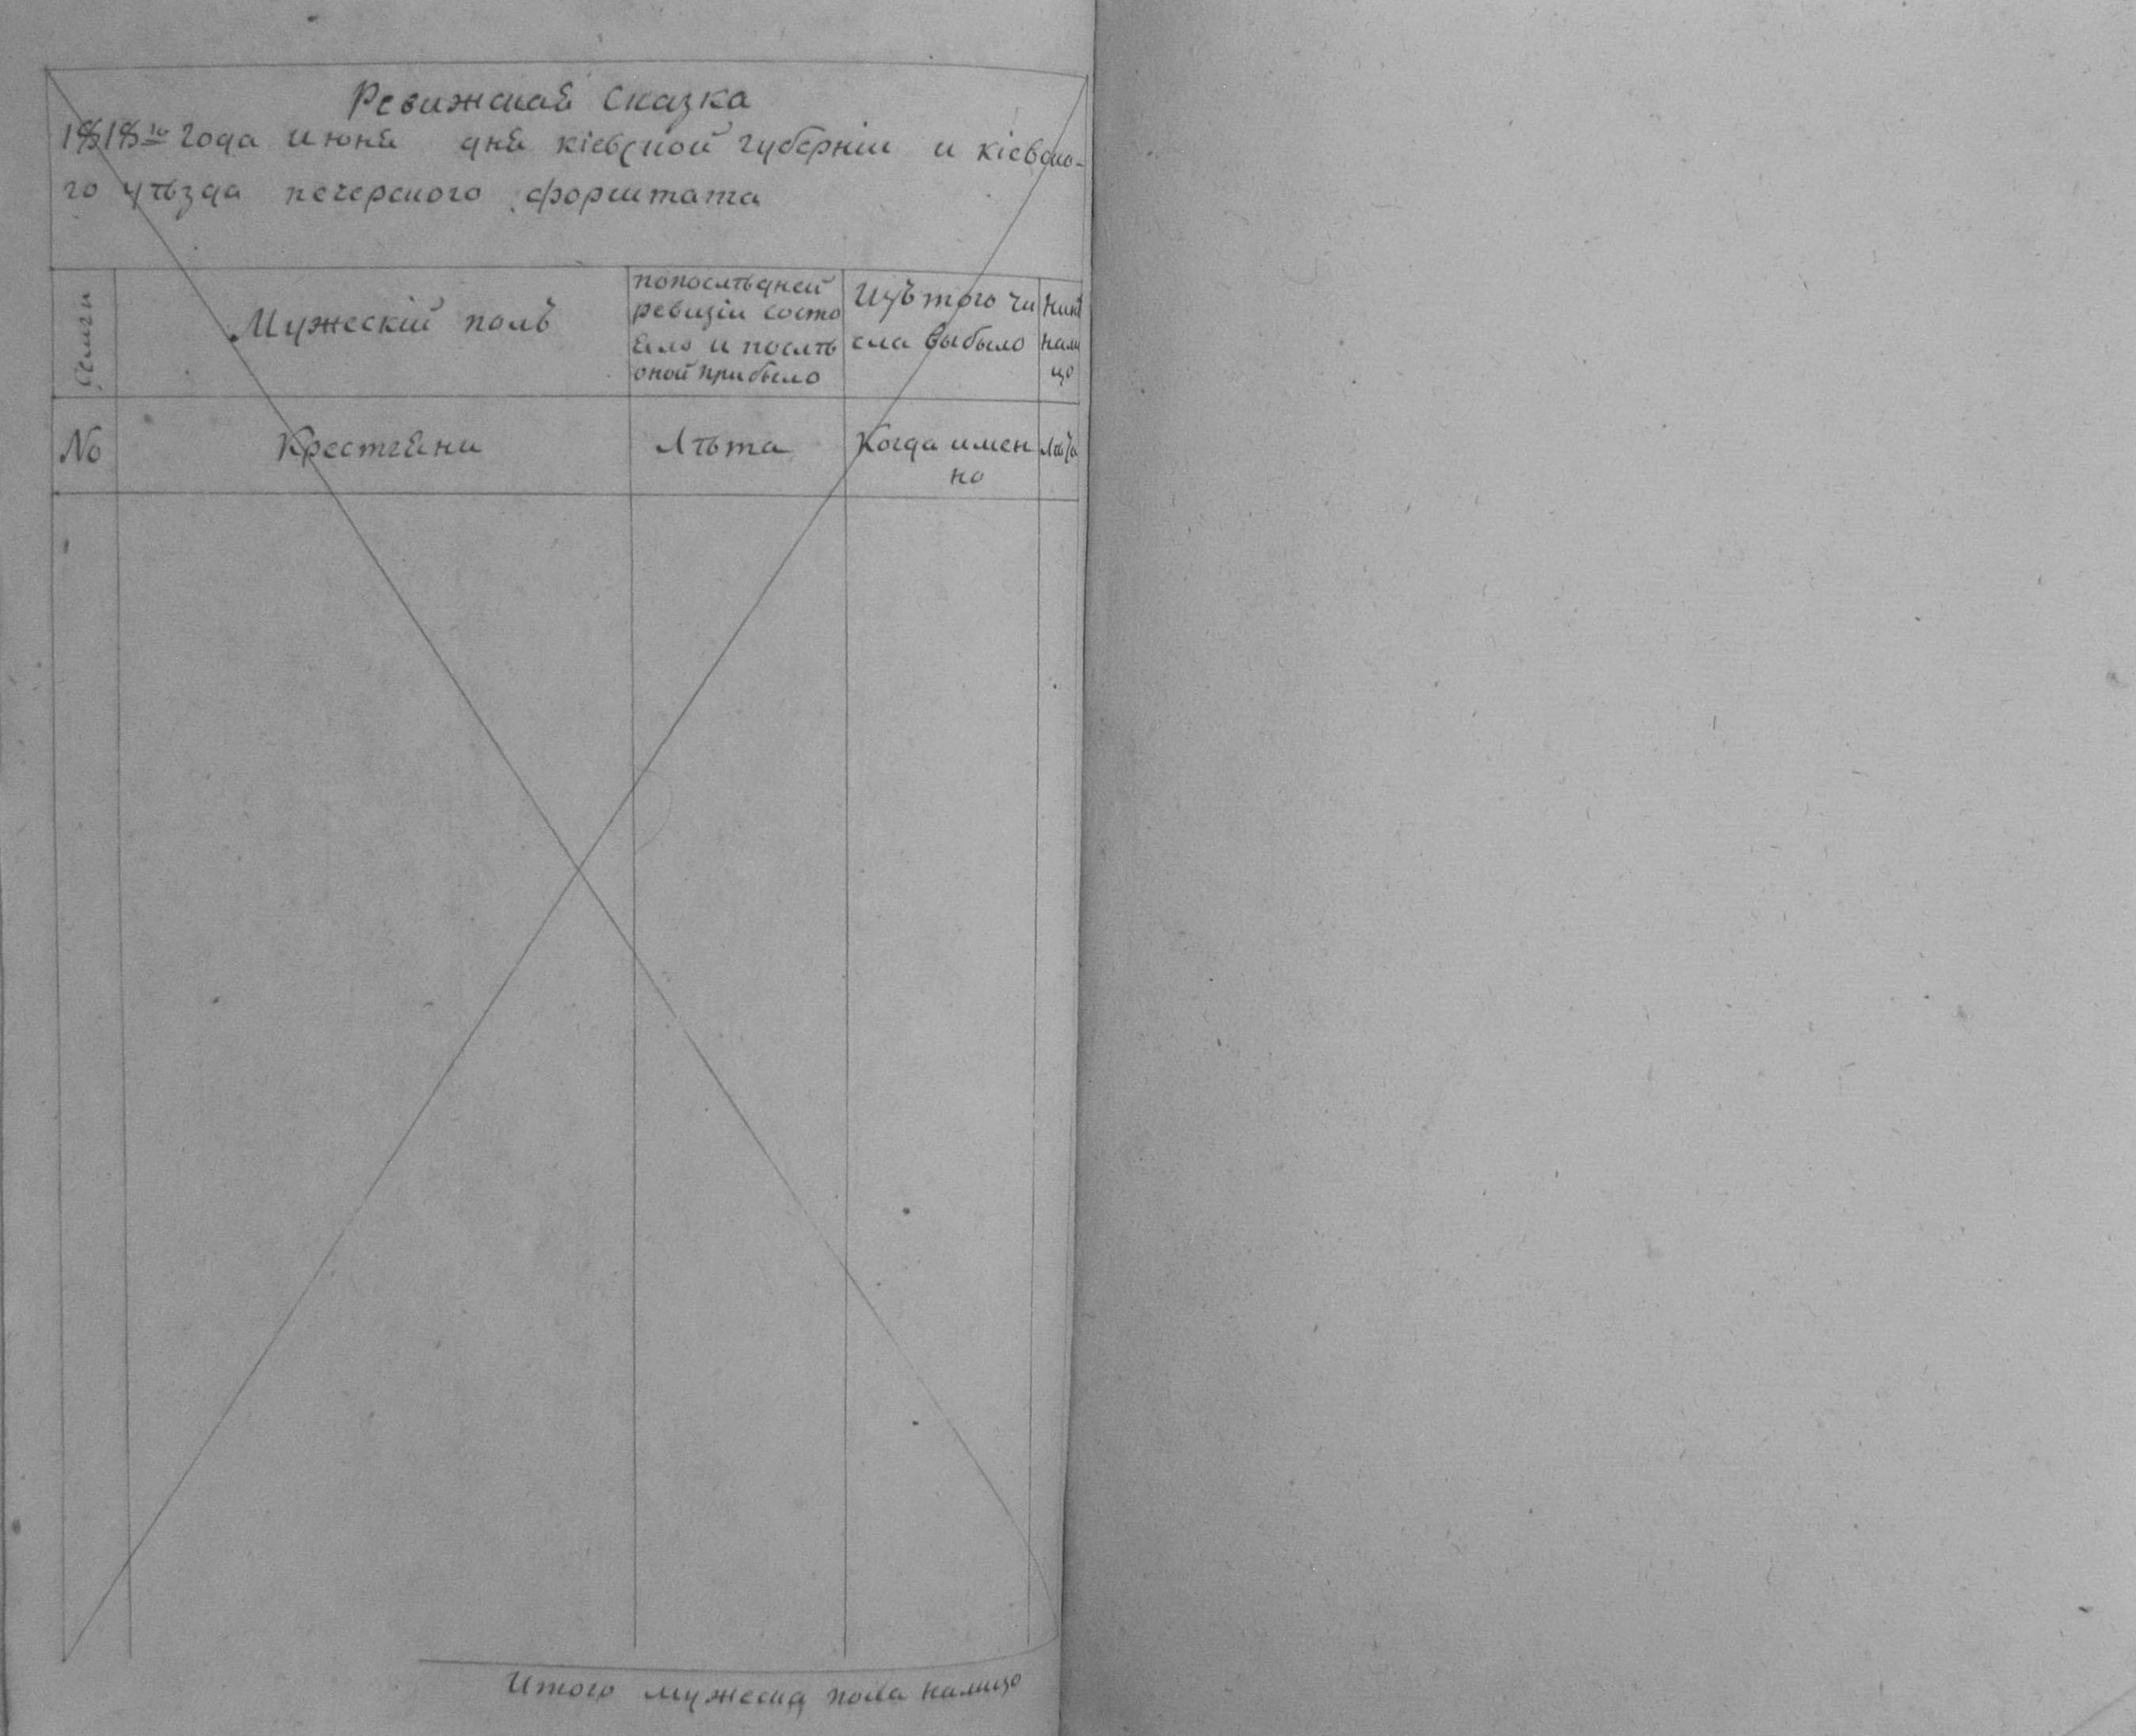 Ревижская Сказка
1818го года июня дня кіевской губерніи и кіевска-
го уѣзда печерского форштата
Семьи
Мужескій полъ
попослѣдней
ревизіи состо
яло и послѣ
оной прибыло
Изъ того чи
сла выбыло
Нинѣ
нали
цо
No
Крестяни
Лѣта
Когда имен
но
Лѣта
Итого мужеска пола налицо